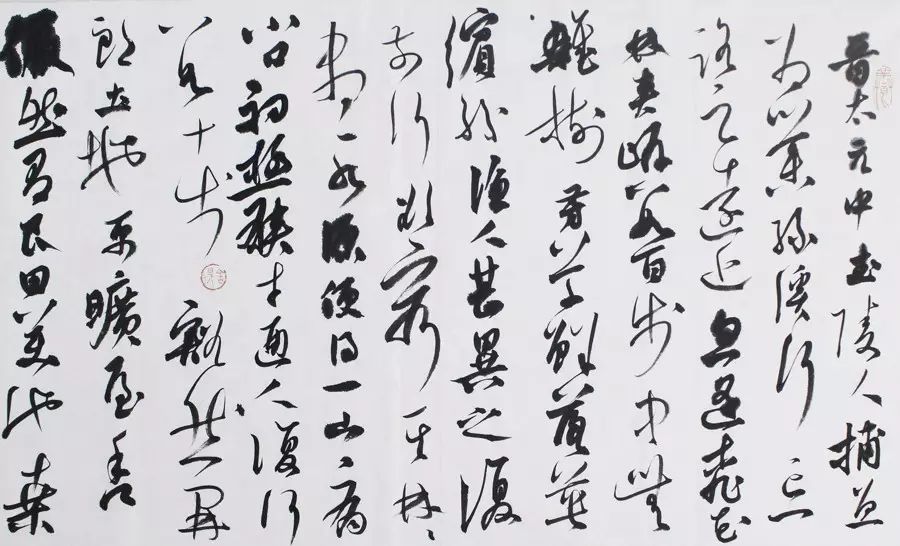 晋太元中武陵人捕魚
为业緣溪行忘
路之遠近忽逢桃花
林夹岸数百步中無
雜樹芳草鮮落英
繽紛漁人甚異之復
前行欲窮其林〻
盡水源便得一山〻有
小口初極狹才通人復行
数十步豁然開
朗土地平曠屋舍
儼然有良田美池桑